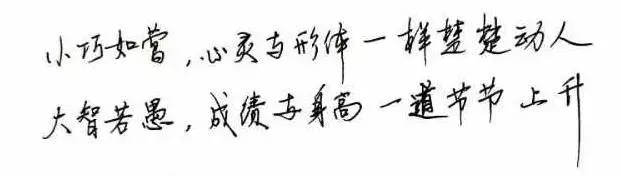 小巧如莺,心灵与形体一样楚楚动人
大智若愚,成绩与身高一道节节上升